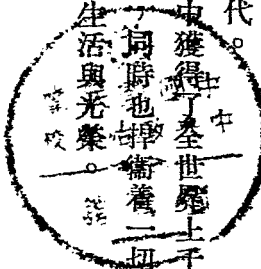 代。
中獲得了全世界上千
，同時也捍衛着一切
生活與光榮。
中
學校